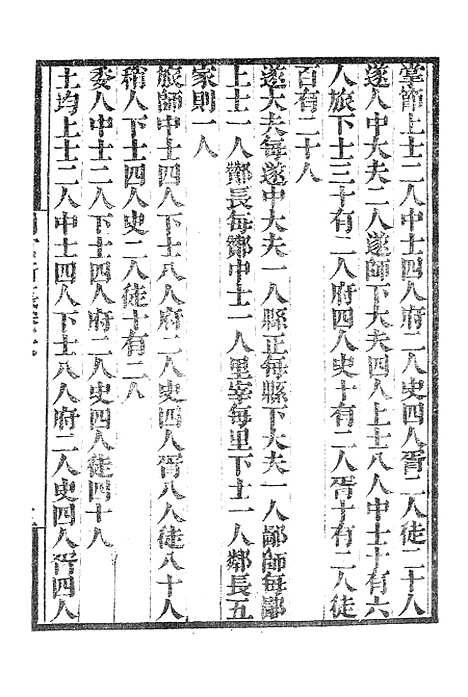 掌節上士二人中士四人府二人史四人胥二人徒二十人
遂人中大夫二人遂師下大夫四人上士八人中士十有六
人旅下士三十有二人府四人史十有二人胥十有二人徒
百有二十人
遂大夫每遂中大夫一人縣正每縣下大夫一人鄙師每鄙
上士一人酇長每酇中士一人里宰每里下士一人鄰長五
家則一人
旅師中士四人下士八人府二人史四人胥八人徒八十人
稍人下士四人史二人徒十有二人
委人中士二人下士四人府二人史四人徒四十人
土均上士二人中士四人下士八人府二人史四人胥四人